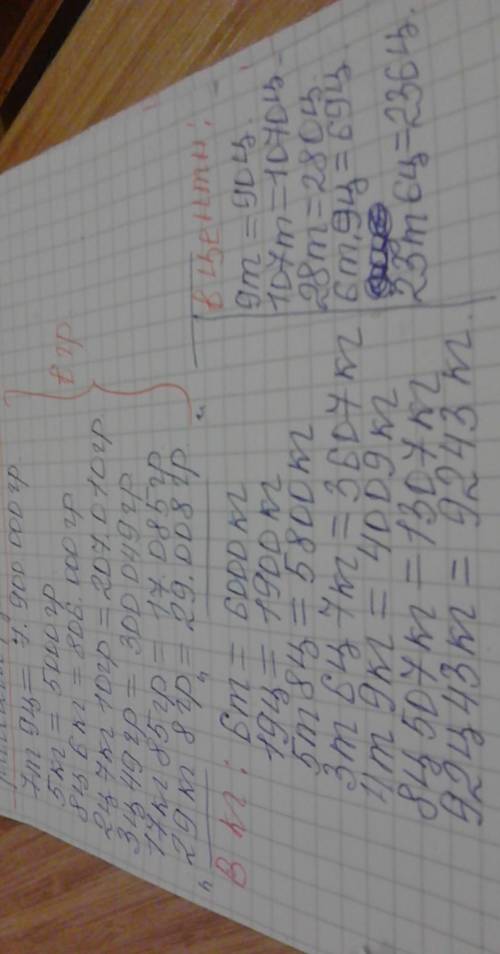 7т 9ц = 7.900 000 гр
5кг = 5000 гр
8ц 6кг = 806.000 гр
2ц 7кг 10гр = 207.010 гр
3ц 49гр = 300 049 гр
17кг 85гр = 17.085 гр
29 кг 8 гр = 29.008 гр
в гр
В кг:
6т = 6000 кг
19ц = 1900 кг
5т 8ц = 5800 кг
3т 6ц 7кг = 3607 кг
4т 9кг = 4009 кг
8ц 507кг = 1307 кг
92ц 43 кг = 9243 кг.
в центн:
9т = 90ц.
107т = 1070ц.
28т = 280ц.
6т.9ц = 69ц.
23т 6ц = 236ц.